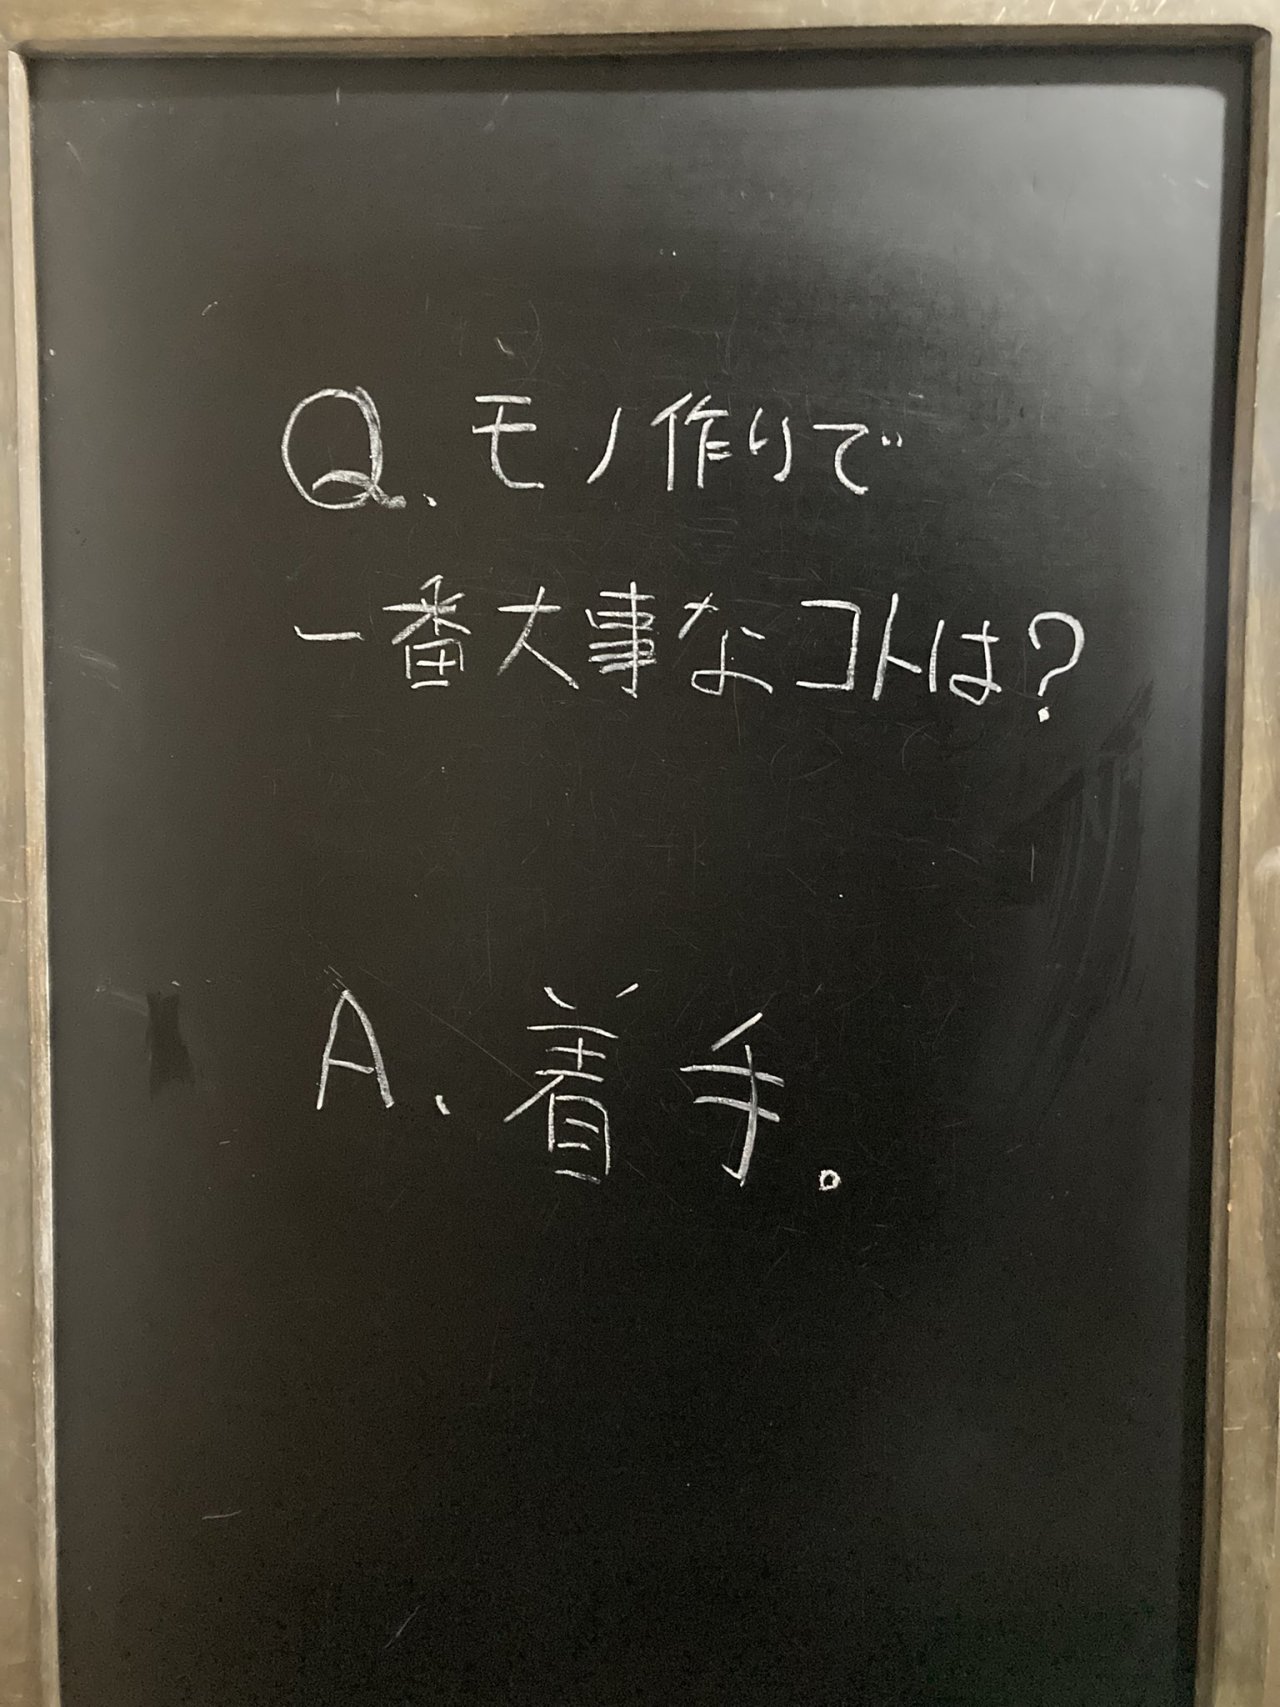 Q.モノ作りで
一番大事なコトは?
A.着手。